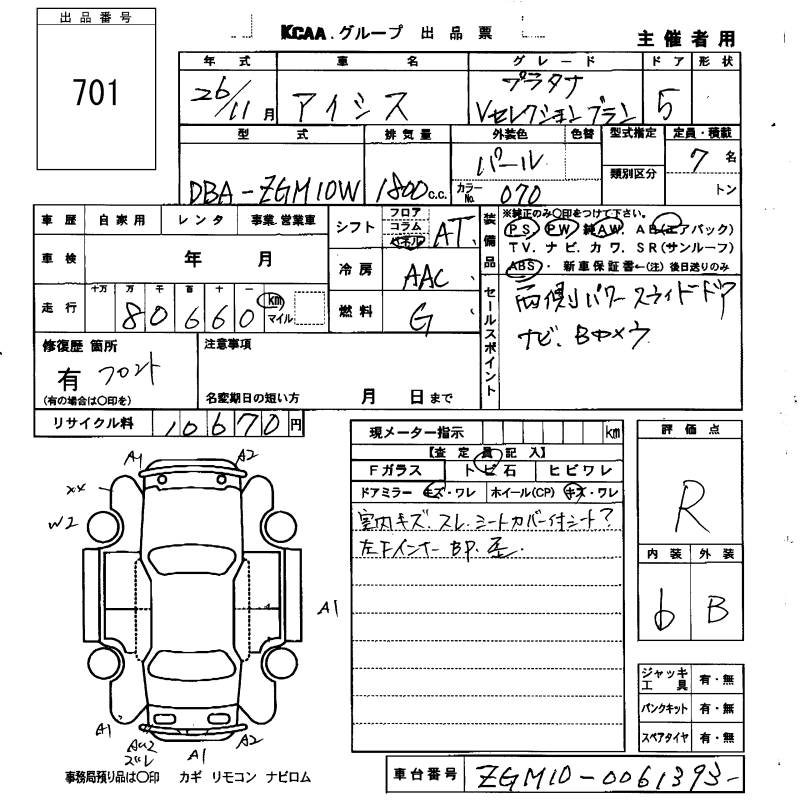 出品番号
701
KCAA.グループ 出品票
主催者用
年式 車名 グレード ドア 形状
26/11月 アイシス プラタナ
Vセレクションプラン 5
型式 排気量 外装色 色替 型式指定 定員・積載
DBA-ZGM10W 1800c.c. パール 類別区分 7名
カラーNo. 070 トン
車歴 自家用 レンタ 事業.営業車
シフト フロア コラム パネル AT
装備品
※純正のみ〇印をつけて下さい。
PS PW 純AW. AB(エアバック)
TV. ナビ. カワ. SR(サンルーフ)
ABS. 新車保証書←(注)後日送りのみ
車検 年 月
冷房 AAC
走行 十万 万 千 百 十 一
80660 km マイル
燃料 G
セールスポイント
両側パワースライドドア
ナビ.Bカメラ
修復歴 箇所
有 フロント
(有の場合は〇印を)
注意事項
名変期日の短い方 月 日まで
リサイクル料 10670円
現メーター指示 km
【査定員記入】
Fガラス トビ石 ヒビワレ
ドアミラー キズ・ワレ ホイール(CP) キズ・ワレ
室内キズ.スレ.シートカバー付シート?
左Fインナー BP.歪.
評価点
R
内装 外装
6 B
A1 A2
XX
W2
A1
A1 A2
ズレ A1
ジャッキ工具 有・無
パンクキット 有・無
スペアタイヤ 有・無
事務局預り品は〇印 カギ リモコン ナビロム
車台番号 ZGM10-0061393-